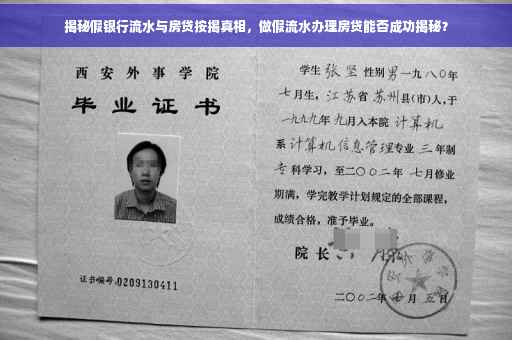 揭秘假银行流水与房贷按揭真相，做假流水办理房贷能否成功揭秘？
西安外事学院
毕业证书
证书编号:0209130411
学生 张坚 性别男一九八〇年
七月生，江苏省苏州县(市)人,于
一九九九年九月入本院 计算机
系 计算机信息管理专业 三年制
专科学习，至二〇〇二年 七月修业
期满，学完教学计划规定的全部课程，
成绩合格，准予毕业。
院长
二〇〇二年 七月 五日